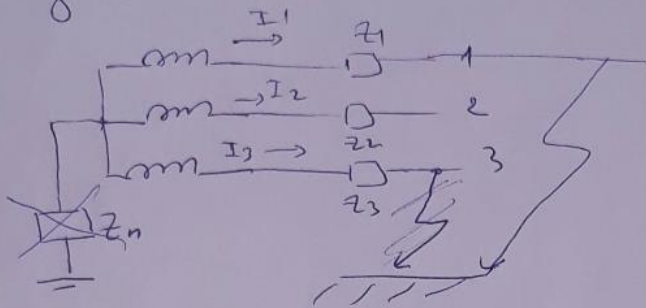 I1
Z1
1
I2
2
Z2
I3
3
Z3
Zn